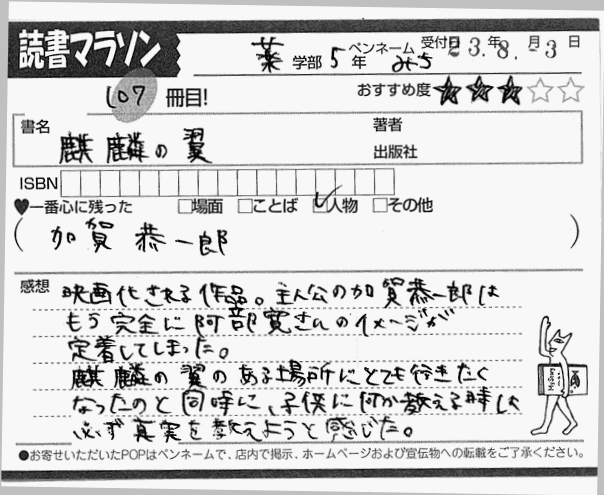 読書マラソン
薬 学部 5 年 ペンネーム みち 受付日 23.年8.月-3日
107 冊目!
おすすめ度 ★★★☆☆
書名 麒麟の翼
著者
出版社
ISBN
♥一番心に残った □場面 □ことば ☑人物 □その他
(加賀 恭一郎)
感想 映画化される作品。主人公の加賀恭一郎は
もう完全に阿部寛さんのイメージが
定着してしまった。
麒麟の翼のある場所にとても行きたく
なったのと同時に、子供に何か教える時は
必ず真実を教えようと感じた。
●お寄せいただいたPOPはペンネームで、店内で掲示、ホームページおよび宣伝物への転載をご了承ください。